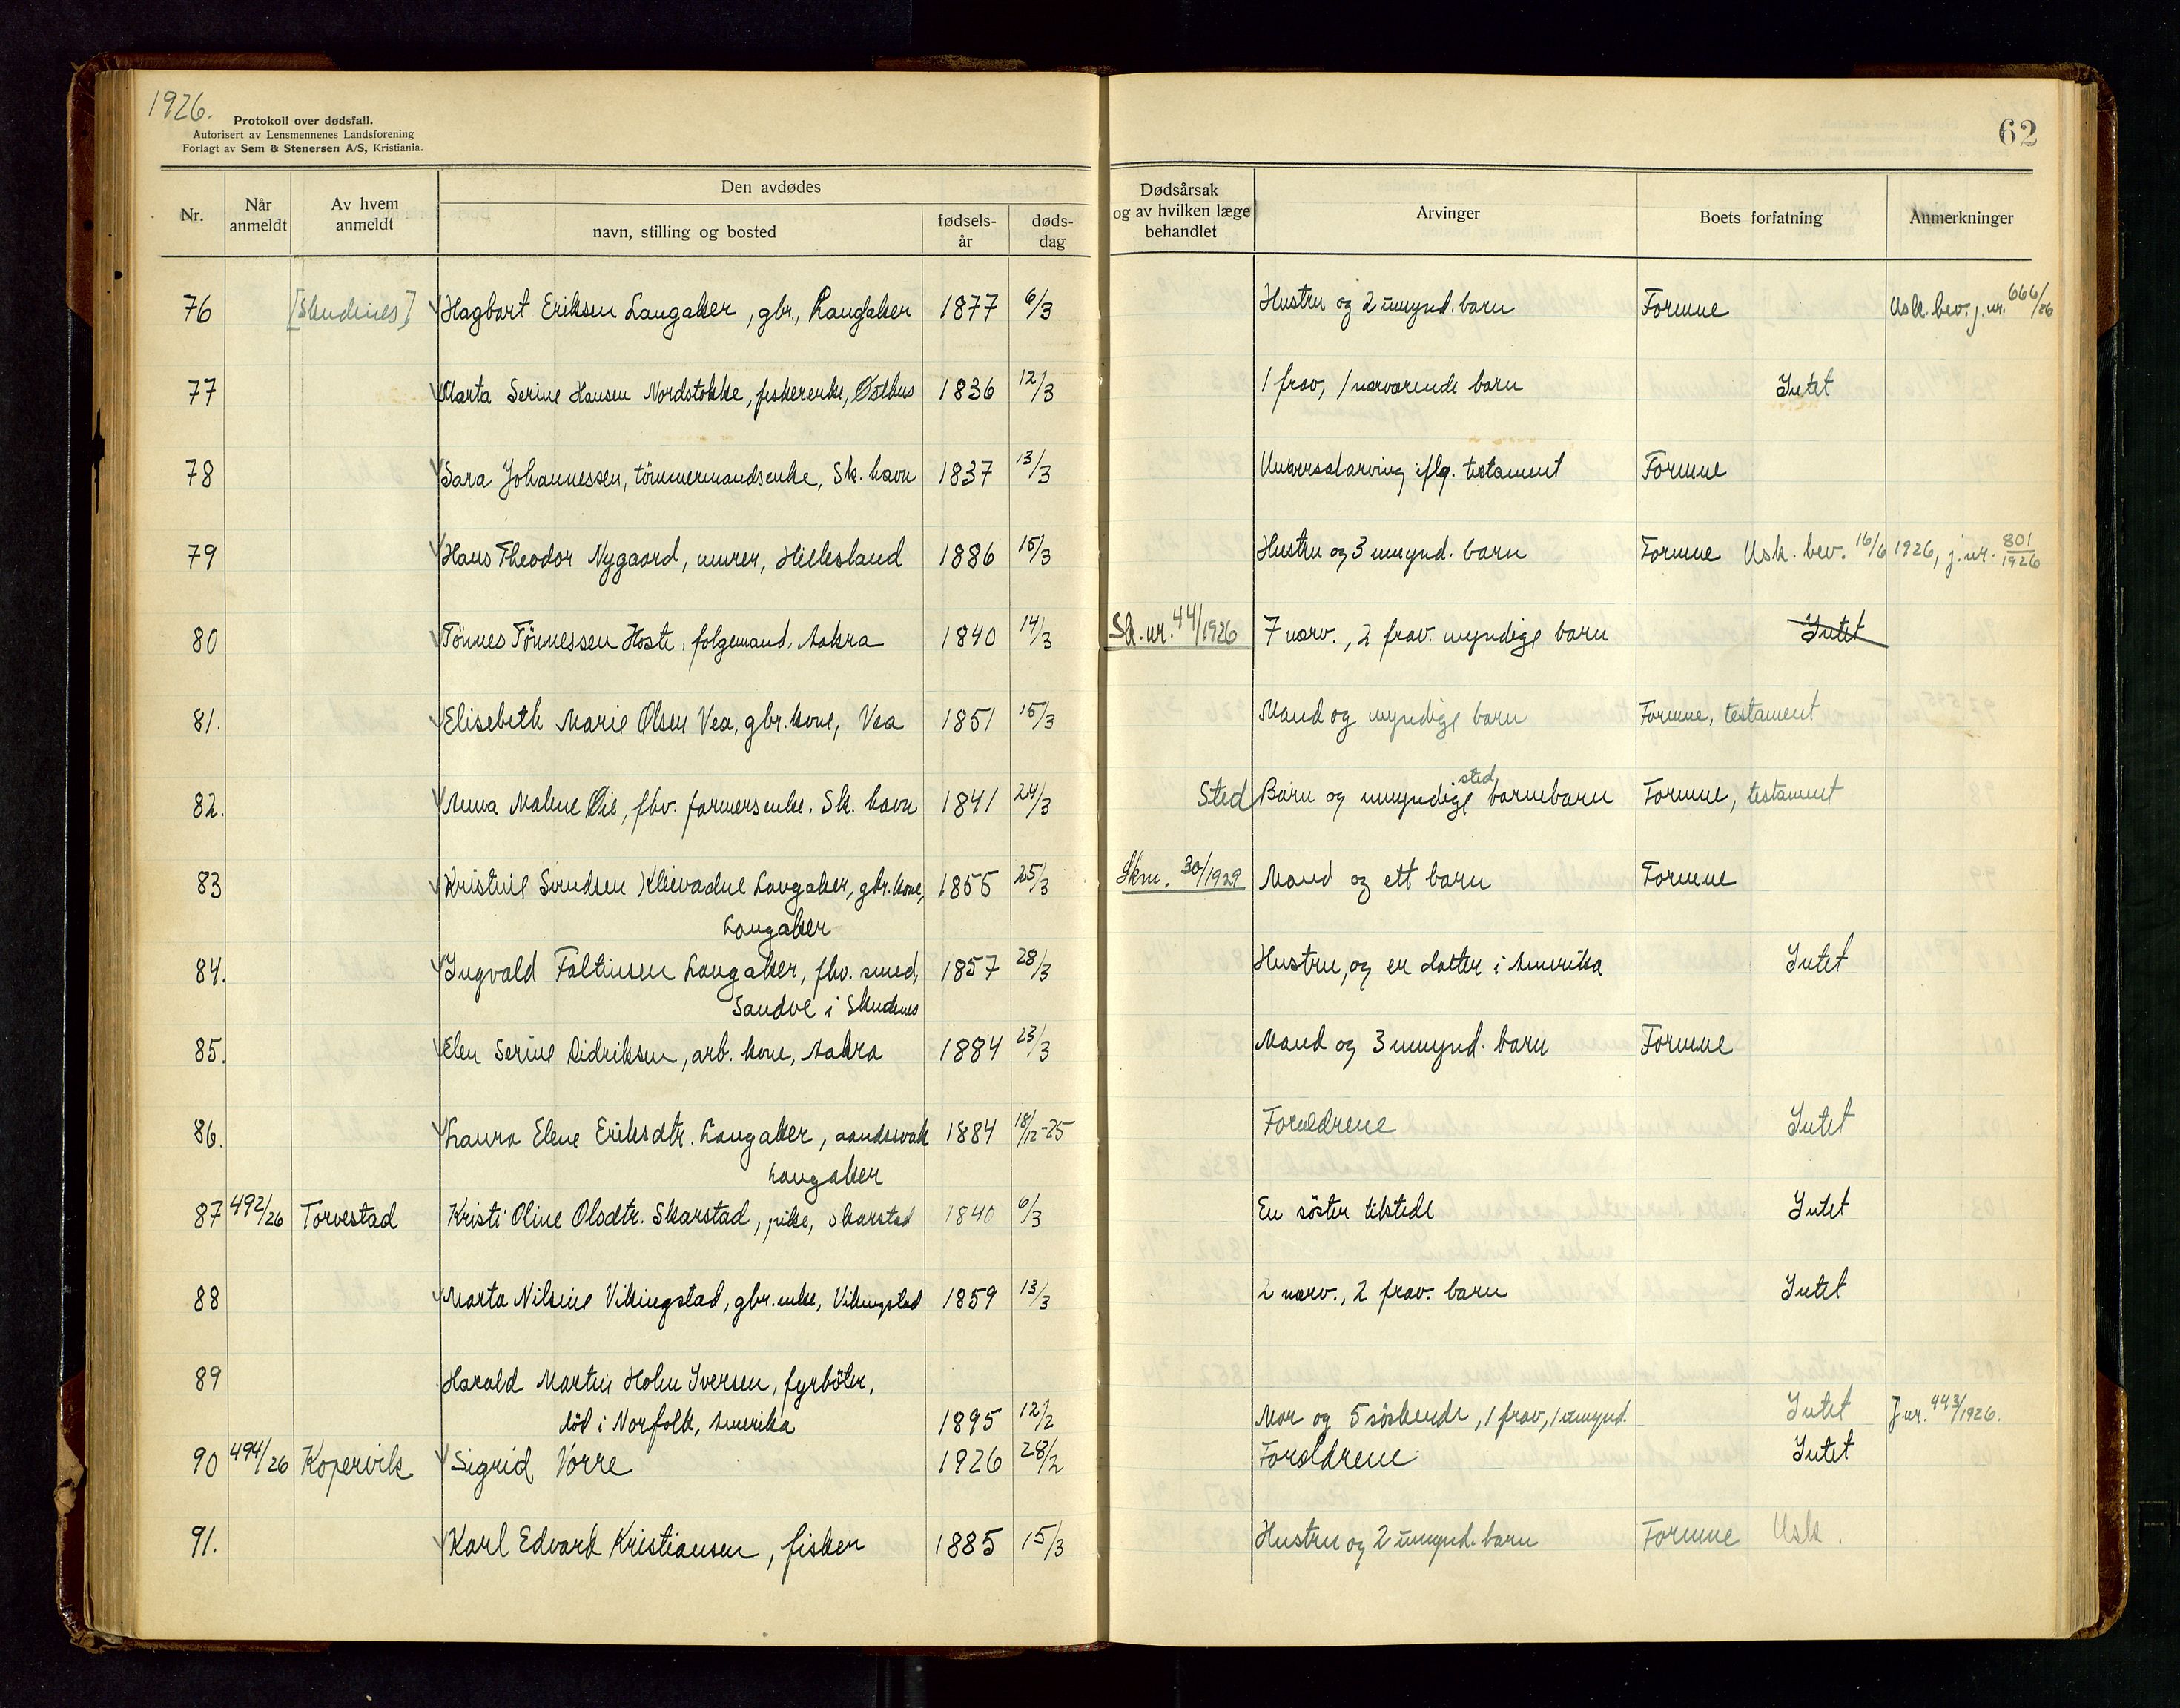 1926.
Protokoll over dødsfall.
Autorisert av Lensmennenes Landsforening
Forlagt av Sem & Stenersen A/S, Kristiania.
62
Nr.
Når anmeldt
Av hvem anmeldt
Den avdødes
navn, stilling og bosted
fødsels-år
døds-dag
Dødsårsak og av hvilken læge behandlet
Arvinger
Boets forfatning
Anmerkninger
76 [Skudenes] Hagbart Eriksen Langaker, gbr., Langaker 1877 6/3 Hustru og 2 umynd. barn Formue Usk. bev. j. nr. 666/26
77 Marta Serine Hansen Nordstokke, fiskerenke, Østhus 1836 12/3 1 frav, 1 nærværende barn Intet
78 Sara Johannessen, tömmermandsenke, Sk. havn 1837 13/3 Universalarving iflg. testament Formue
79 Hans Theodor Nygaard, murer, Hillesland 1886 15/3 Hustru og 3 umynd. barn Formue Usk. bev. 16/6 1926, j. nr. 801/1926
80 Tönnes Tönnessen Hoste, folgemand, Aakra 1840 14/3 Sk. nr. 44/1926 7 nærv., 2 frav. myndige barn Intet
81. Elisebeth Marie Olsen Vea, gbr. kone, Vea 1851 15/3 Mand og myndige barn Formue, testament
82. Anna Malene Øie, fhv. formersenke, Sk. havn 1841 24/3 Sted Barn og umyndige sted barnebarn Formue, testament
83 Kristine Svendsen Kleivadne Langaker, gbr. kone, 1855 25/3 Skm. 30/1929 Mand og ett barn Formue
Langaker
84. Ingvald Faltinsen Langaker, fhv. smed, 1857 28/3 Hustru, og en datter i Amerika Intet
Sandve i Skudenes
85. Elen Serine Didriksen, arb. kone, Aakra 1884 23/3 Mand og 3 umynd. barn Formue
86. Laura Elene Eriksdtr. Langaker, aandssvak 1884 18/12-25 Forældrene Intet
Langaker
87 492/26 Torvestad Kristi Oline Olsdtr. Skarstad, pike, Skarstad 1840 6/3 En söster tilstede Intet
88 Marta Nilsine Vikingstad, gbr. enke, Vikingstad 1859 13/3 2 nærv., 2 frav. barn Intet
89 Harald Martin Holm Iversen, fyrböter,
död i Norfolk, Amerika 1895 12/2 Mor og 5 söskende, 1 frav, 1 umynd. Intet J nr. 443/1926.
90 494/26 Kopervik Sigrid Vorre 1926 28/2 Forældrene Intet
91. Karl Edvard Kristiansen, fisker 1885 15/3 Hustru og 2 umynd. barn Formue Usk.